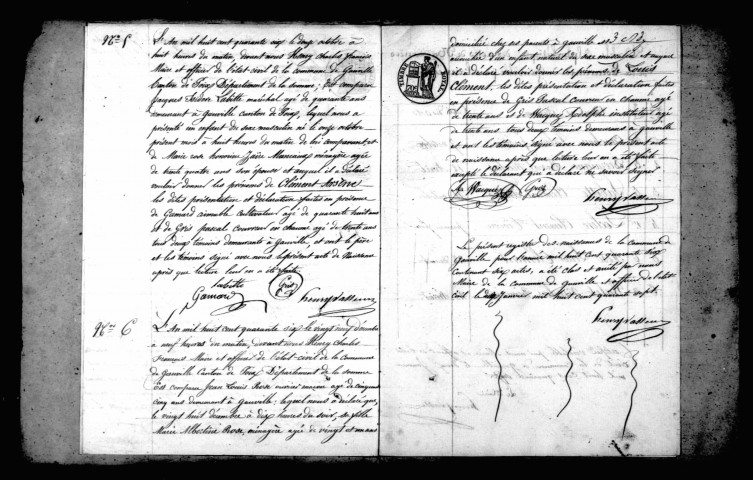 N.º 5
L'An mil huit cent quarante six le douze octobre à
huit heures du matin, devant nous Henry Charles François
Maire et officier de l'état civil de la commune de Gauville
Canton de Poix Département de la Somme; Est comparu
Jacques Isidore Labitte maréchal agé de quarante ans
demeurant à Gauville canton de Poix, lequel nous a
présenté un enfant du sexe masculin né le onze octobre
présent mois à huit heures du matin de lui comparant et
de Marie Rose honorine Zaïre ménagère agée
de trente quatre ans son épouse et auquel il a déclaré
vouloir donner les prénoms de Clément Arsène
les dites présentation et déclaration faites en présence
de Gamard cultivateur agé de quarante huit ans
et de Gris pascal couvreur en chaume agé de trente ans
tous deux témoins demeurants à Gauville, et ont le père
et les témoins signé avec nous le présent acte de Naissance
après que lecture leur en a été faite
Labitte
Gamard Gris henry
N.º 6
L'An mil huit cent quarante six le vingt neuf décembre
à neuf heures du matin, devant nous Henry Charles
François Maire et officier de l'état civil de la Commune
de Gauville Canton de Poix Département de la Somme
Est comparu Jean Louis Rose ouvrier maçon agé de cinquante
cinq ans demeurant à Gauville; lequel nous a déclaré que
le vingt huit décembre à dix heures du soir, sa fille
Marie Albertine Rose, ménagère agée de vingt et un ans
domiciliée chez ses parents à gauville est
accouchée d'un enfant naturel du sexe masculin et auquel
il a déclaré vouloir donner les prénoms de Louis
Clément, les dites présentation et déclaration faites
en présence de Gris Pascal couvreur en chaume agé
de trente ans et de Wacquez Adolphe instituteur agé
de trente ans tous deux témoins demeurants à gauville
et ont les témoins signé avec nous le présent acte
de naissance après que lecture leur en a été faite
excepté le déclarant qui a déclaré ne savoir signer.
Wacquez Gris
henry
Le présent registre des naissances de la Commune de
Gauville pour l'année mil huit cent quarante six
contenant six actes, a été clos et arrêté par nous
Maire de la commune de gauville et officier de l'état
civil le Janvier mil huit cent quarante sept.
henry
TIMBRE ROYAL